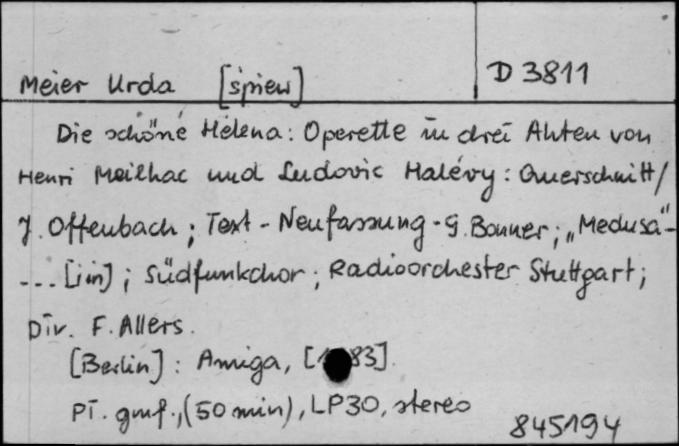 Meier Urda [śpiew] D 3811
Die schöne Helena: Operette in drei Akten von
Henri Meilhac und Ludovic Halévy: Querschnitt/
J. Offenbach; Text-Neufassung-G. Bonner; „Medusa"-
... [in]; Südfunkchor; Radioorchester Stuttgart;
Dir. F. Allers.
[Berlin]: Amiga, [1 83].
Pł. gmf., (50 min), LP30, stereo
845194